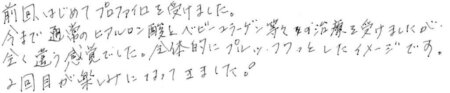 前回、はじめてプロファイロを受けました。
今まで通常のヒアルロン酸と、ベビーコラーゲン等の治療を受けましたが、
全く違う感覚でした。全体的にプルッ・フワっとしたイメージです。
2回目が楽しみになってきました。